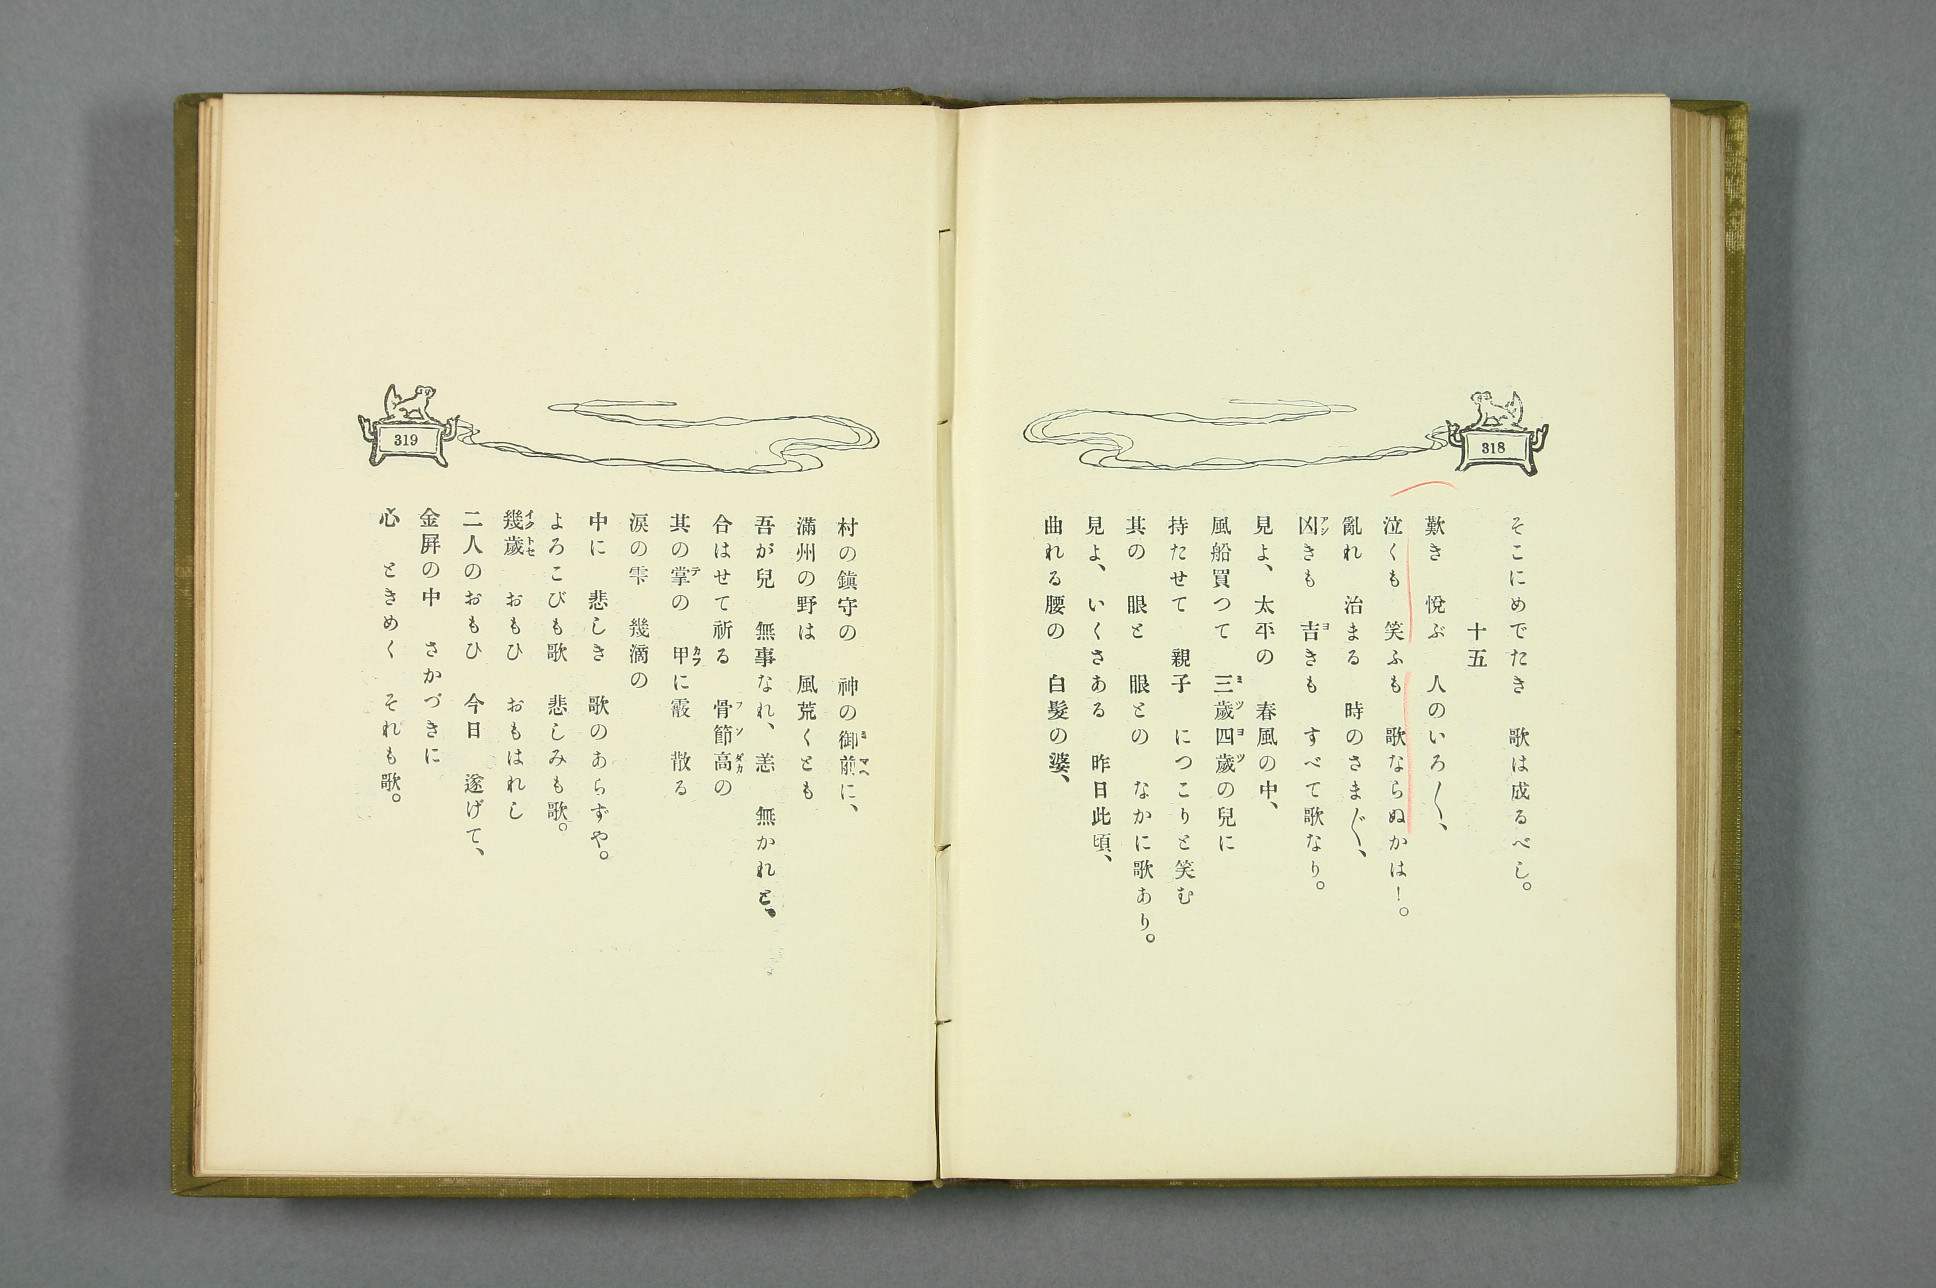 318
そこにめでたき　歌は成るべし。
十五
歎き　悅ぶ　人のいろ〱、
泣くも　笑ふも　歌ならぬかは！。
亂れ　治まる　時のさま〲、
凶きも　吉きも　すべて歌なり。
見よ、太平の　春風の中、
風船買つて　三歲四歲の兒に
持たせて　親子　につこりと笑む
其の　眼と　眼との　なかに歌あり。
見よ、いくさある　昨日此頃、
曲れる腰の　白髮の婆、
319
村の鎭守の　神の御前に、
滿州の野は　風荒くとも
吾が兒　無事なれ、恙　無かれと、
合はせて祈る　骨節高の
其の掌の　甲に霰　散る
淚の雫　幾滴の
中に　悲しき　歌のあらずや。
よろこびも歌　悲しみも歌。
幾歲　おもひ　おもはれし
二人のおもひ　今日　遂げて、
金屛の中　さかづきに
心　ときめく　それも歌。